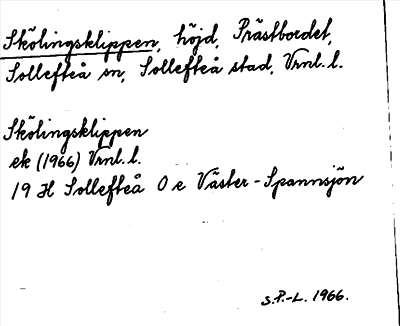 Skölingsklippen, höjd, Prästbordet,
Sollefteå sn, Sollefteå stad, Vrnl. l.
Skölingsklippen
ek (1966) Vrnl. l.
19 H Sollefteå O e Väster-Spannsjön
S.P.-L. 1966.